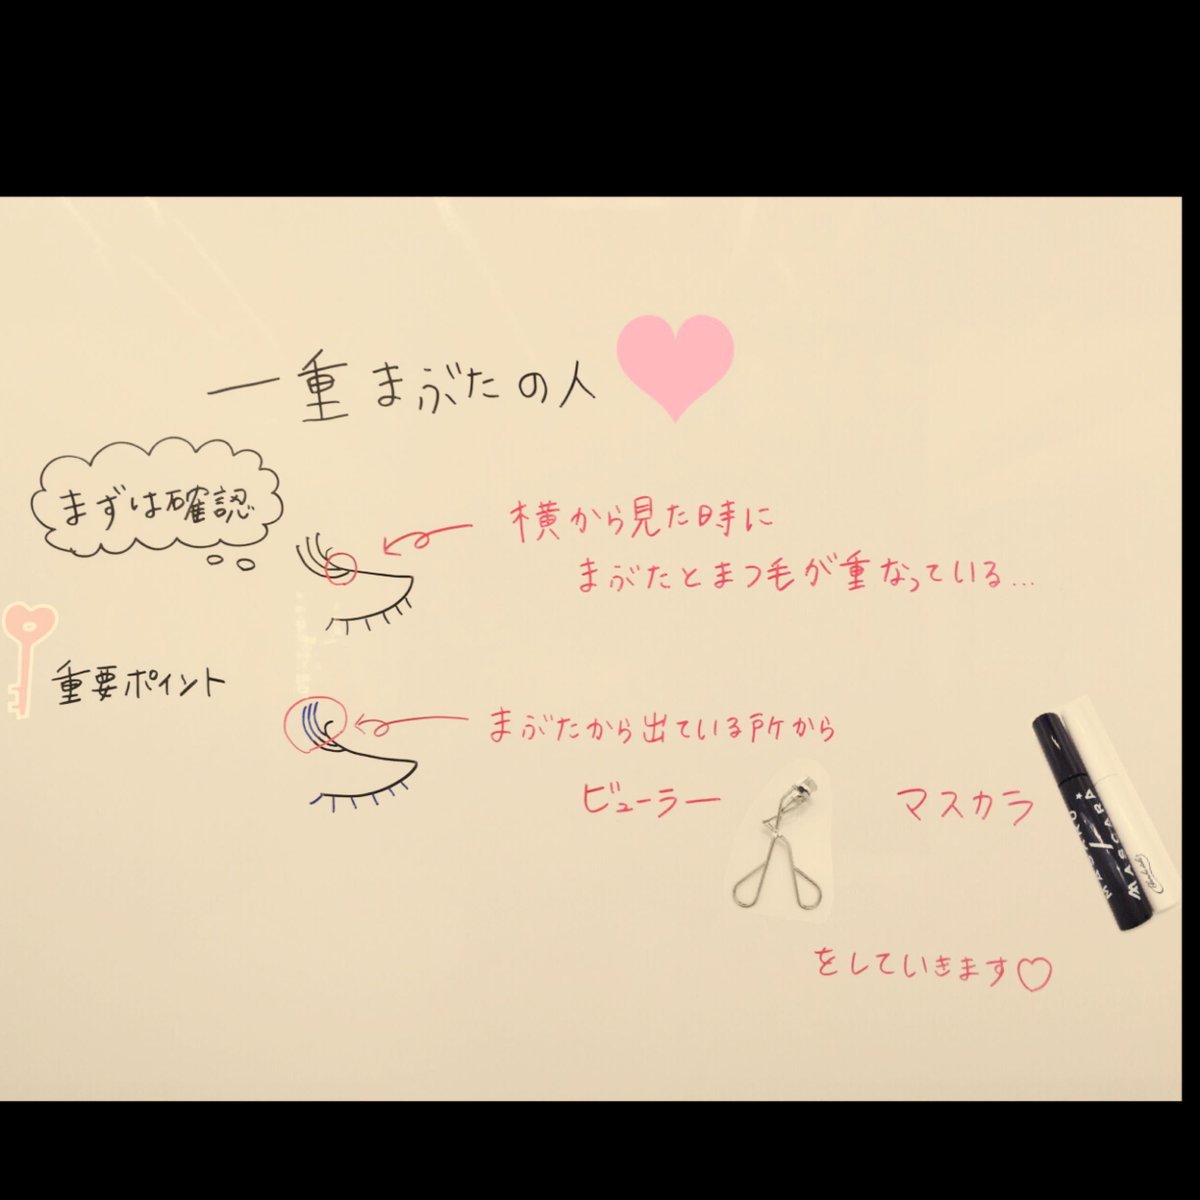 一重まぶたの人
まずは確認
横から見た時に
まぶたとまつ毛が重なっている...
重要ポイント
まぶたから出ている所から
ビューラー
マスカラ
MASCARA
をしていきます♡